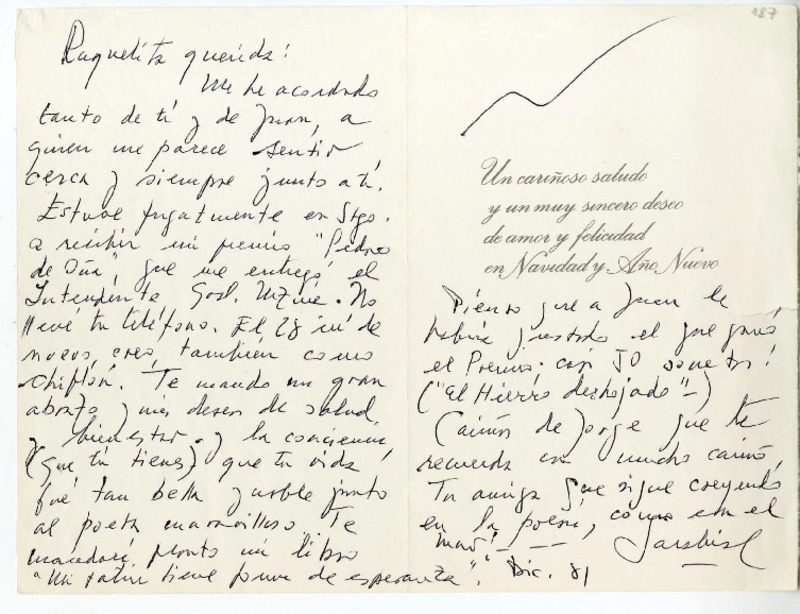 Raquelita querida:
Me he acordado
tanto de tí y de Juan, a
quien me parece sentir
cerca y siempre junto a tí.
Estuve fugazmente en Stgo.
a recibir mi premio "Pedro
de Oña", que me entregó el
Intendente Gral.
No
llevé tu teléfono. El 28 iré de
nuevo, creo, también como
chiflón. Te mando un gran
abrazo y mis deseos de salud
y bienestar. y la conciencia
(que tú tienes) que tu vida
fué tan bella y noble junto
al poeta maravilloso. Te
mandaré pronto mi libro
"Mi tiene forma de esperanza".
187
Un cariñoso saludo
y un muy sincero deseo
de amor y felicidad
en Navidad y Año Nuevo
Pienso que a Juan le
habría gustado el que gané
el Premio. con 50 sonetos!
("El Hierro deshojado"—)
Cariños de Jorge que te
recuerda con mucho cariño,
Tu amiga que sigue creyendo
en la poesía, como en el
mar! — — —
Dic. 81